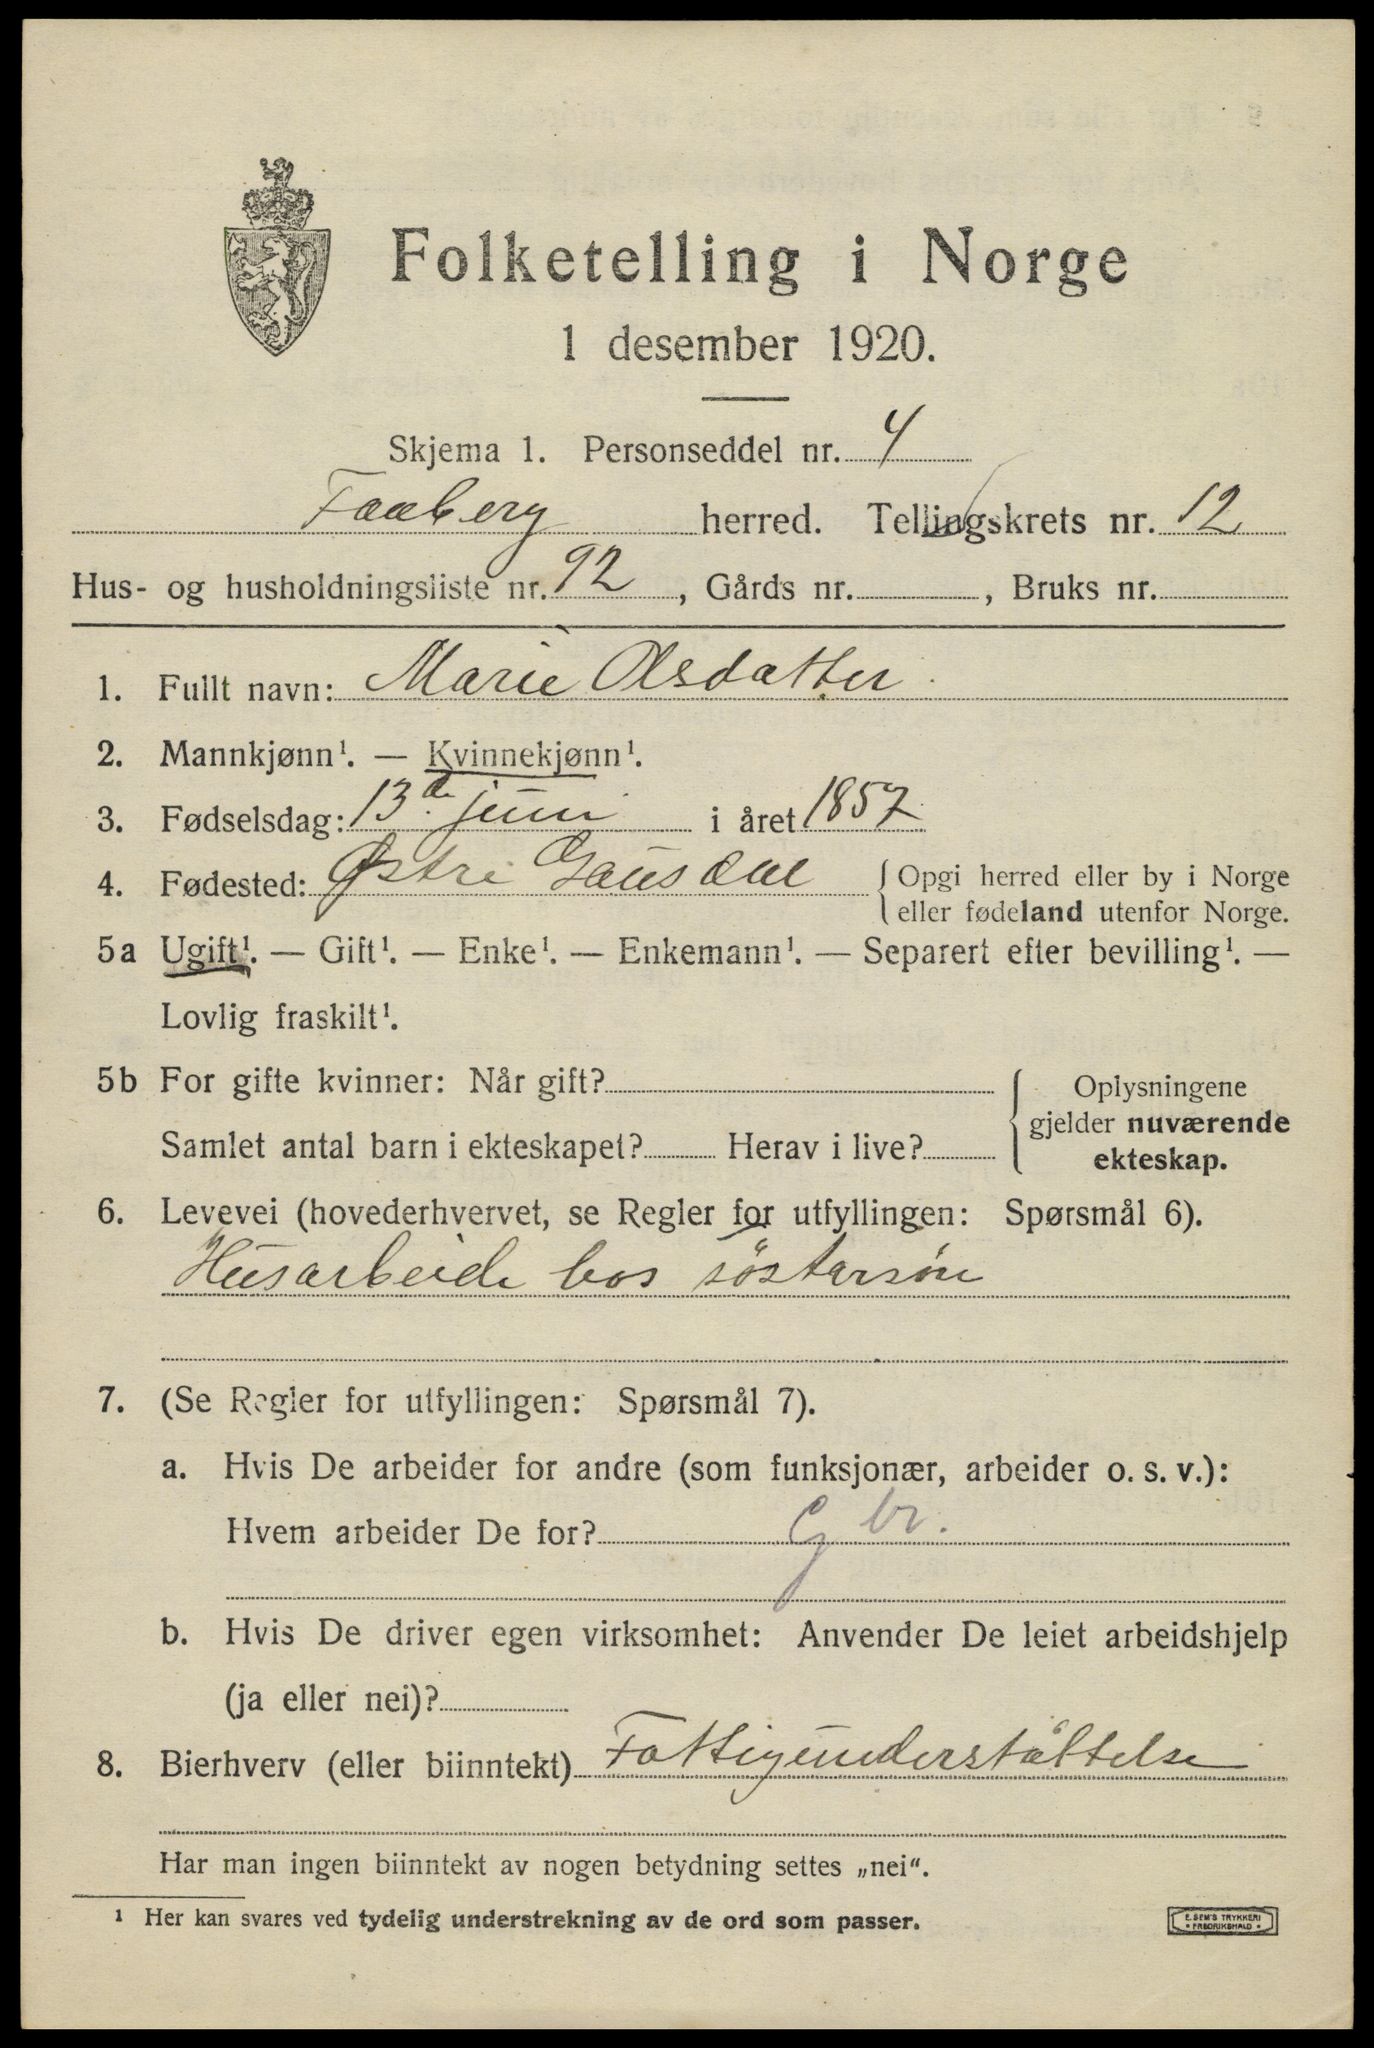 Folketelling i Norge
1 desember 1920.
Skjema 1. Personseddel nr. 4
Faaberg herred. Tellingskrets nr. 12
Hus- og husholdningsliste nr. 92, Gårds nr. , Bruks nr.
1. Fullt navn: Marie Olsdatter
2. Mannkjønn¹. — Kvinnekjønn¹.
3. Fødselsdag: 13de juni i året 1857
4. Fødested: Østre Gausdal { Opgi herred eller by i Norge
eller fødeland utenfor Norge.
5a Ugift¹. — Gift¹. — Enke¹. — Enkemann¹. — Separert efter bevilling¹. —
Lovlig fraskilt¹.
5b For gifte kvinner: Når gift? { Oplysningene
gjelder nuværende
Samlet antal barn i ekteskapet? Herav i live?
ekteskap.
6. Levevei (hovederhvervet, se Regler for utfyllingen: Spørsmål 6).
Husarbeide hos søstersøn
7. (Se Regler for utfyllingen: Spørsmål 7).
a. Hvis De arbeider for andre (som funksjonær, arbeider o. s. v.):
Hvem arbeider De for? G br.
b. Hvis De driver egen virksomhet: Anvender De leiet arbeidshjelp
(ja eller nei)?
8. Bierhverv (eller biinntekt) Fattigunderstøttelse
Har man ingen biinntekt av nogen betydning settes „nei“.
¹ Her kan svares ved tydelig understrekning av de ord som passer.
E. SEM'S TRYKKERI
• FREDRIKSHALD •